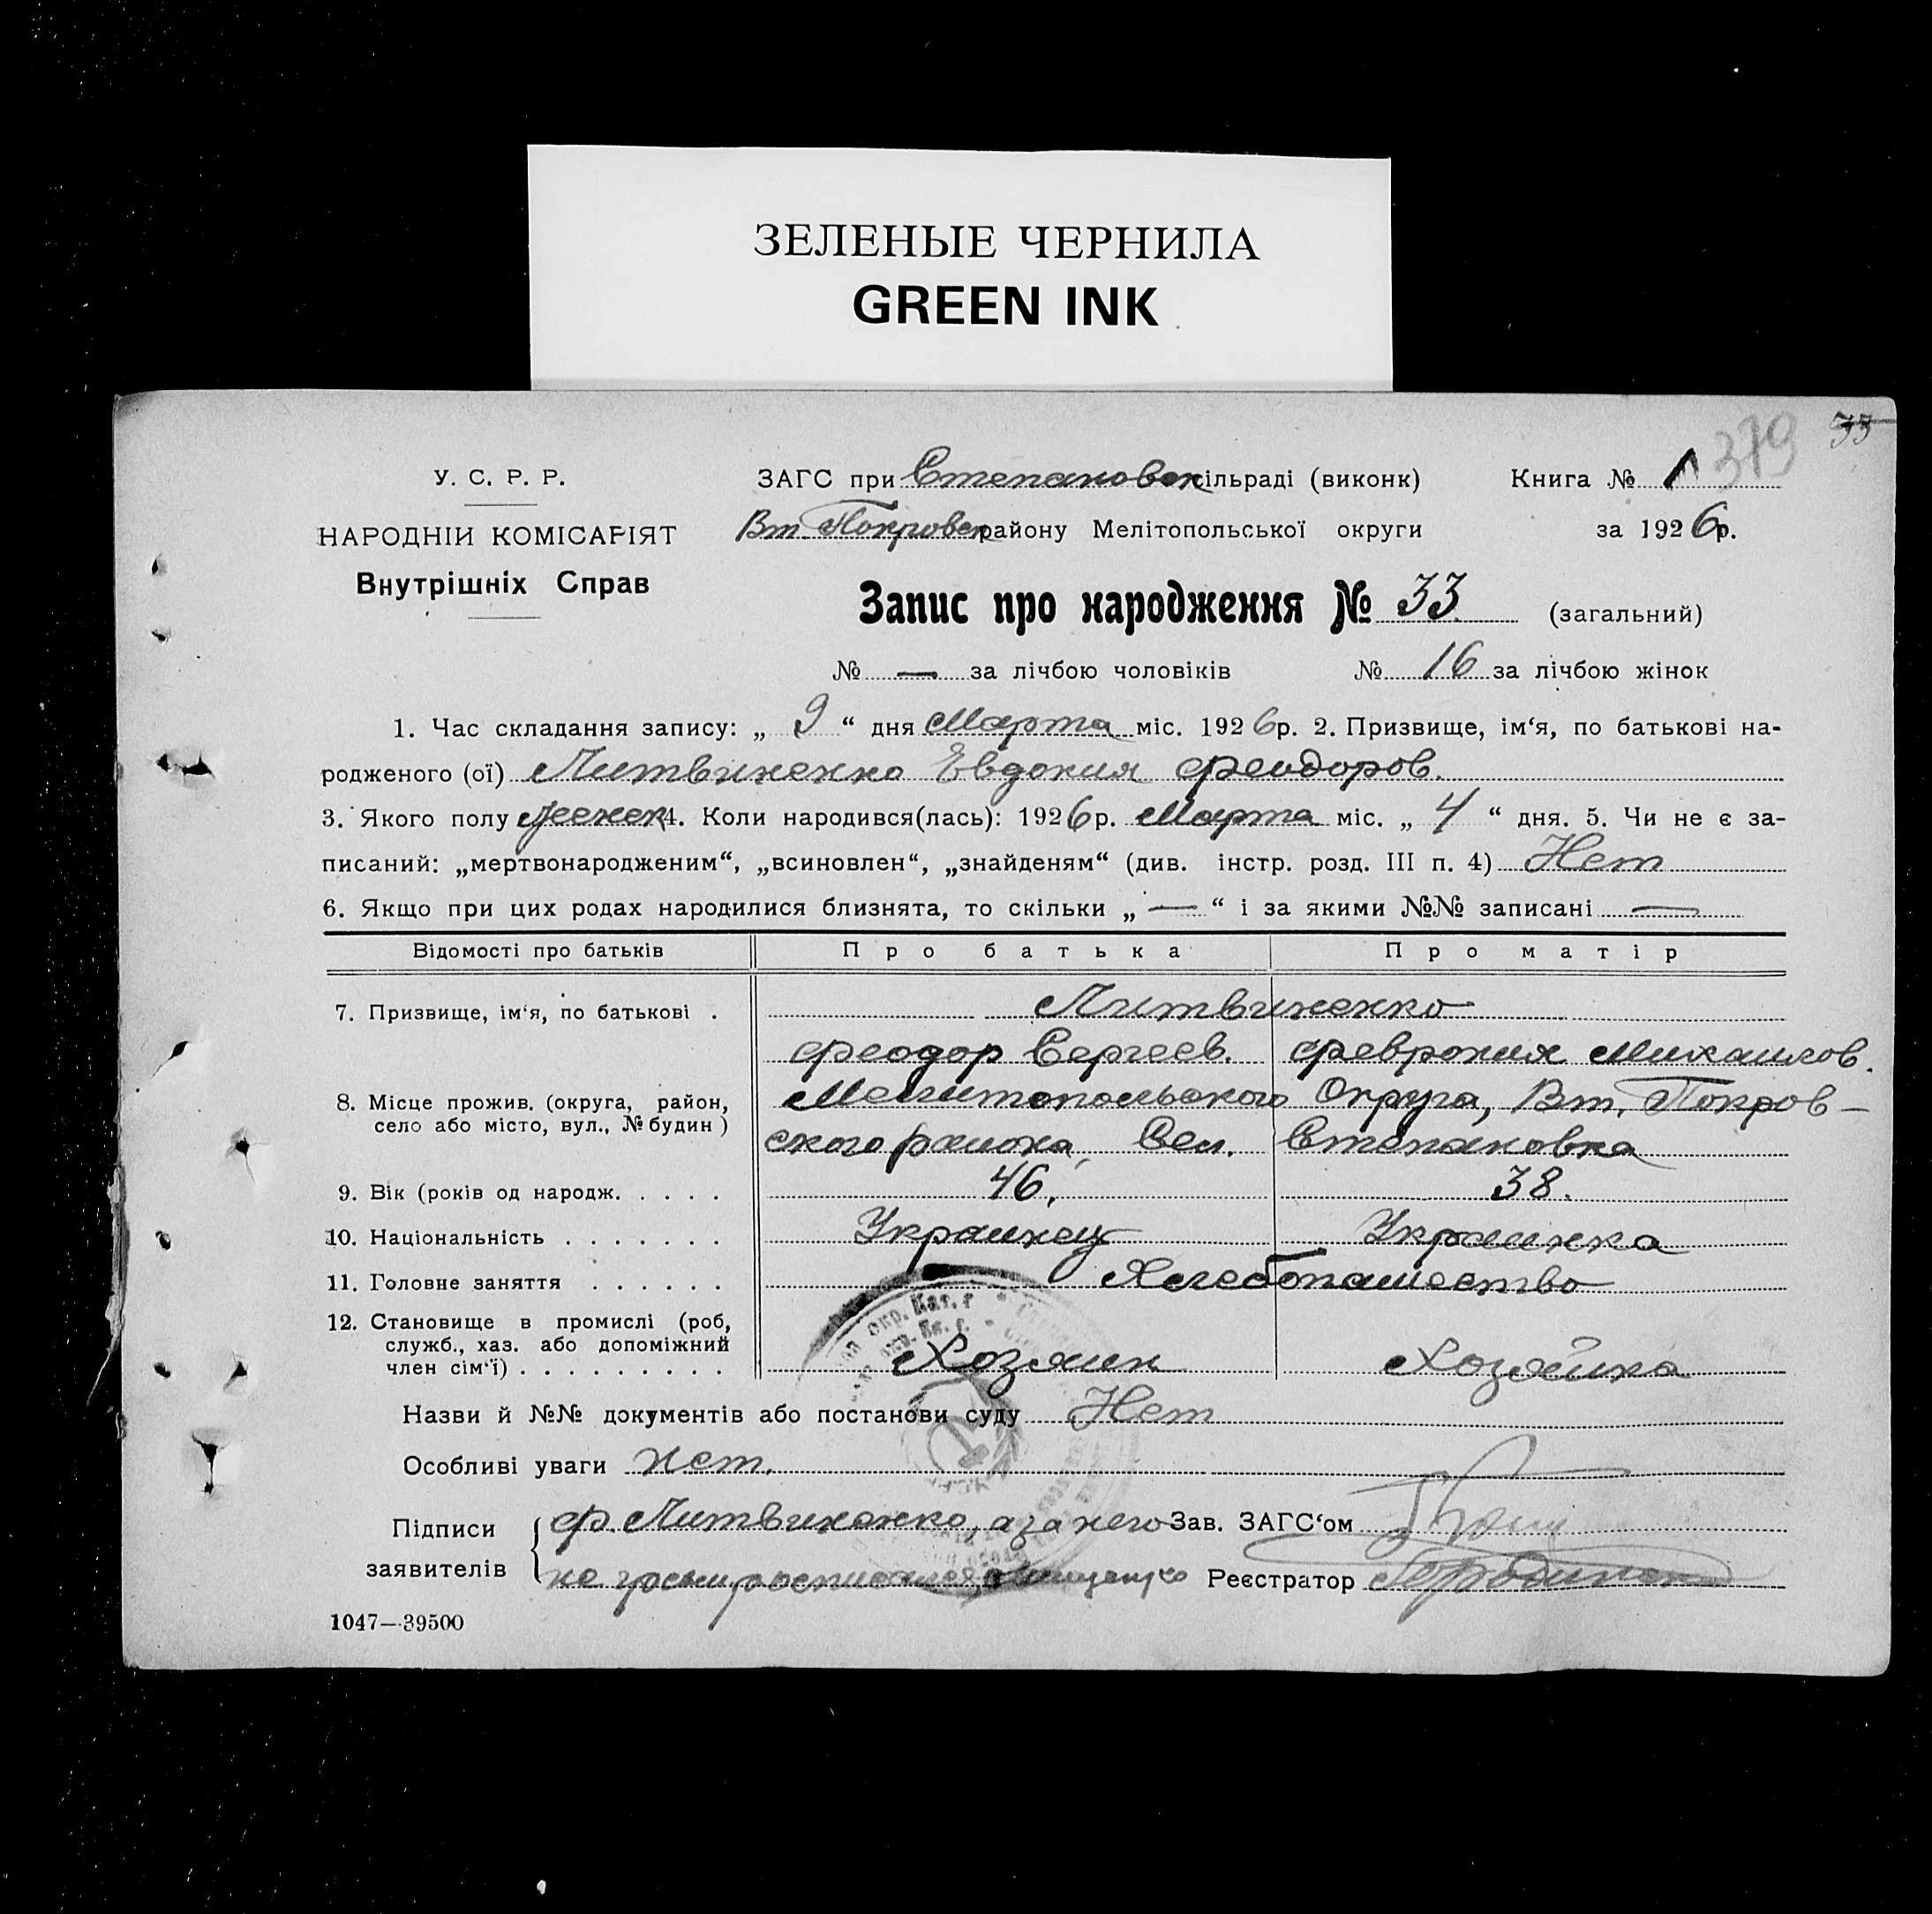 ЗЕЛЕНЫЕ ЧЕРНИЛА
GREEN INK
379 33
У. С. Р. Р.
НАРОДНІЙ КОМІСАРІЯТ
Внутрішніх Справ
ЗАГС при Степановск сільраді (виконк) Книга № 1
Вт. Покровск району Мелітопольської округи за 1926 р.
Запис про народження № 33. (загальний)
№ — за лічбою чоловіків № 16 за лічбою жінок
1. Час складання запису: „ 9 “ дня Марта міс. 1926 р. 2. Призвище, ім‘я, по батькові на-
родженого (ої) Литвиненко Евдокия Феодоров.
3. Якого полу Женск 4. Коли народився(лась): 1926 р. Марта міс. „ 4 “ дня. 5. Чи не є за-
писаний: „мертвонародженим“, „всиновлен“, „знайденям“ (див. інстр. розд. III п. 4) Нет
6. Якщо при цих родах народилися близнята, то скільки „ — “ і за якими №№ записані —
Відомості про батьків Про батька Про матір
7. Призвище, ім‘я, по батькові . Литвиненко
Феодор Сергеев. Феврония Михаилов.
8. Місце прожив. (округа, район, село або місто, вул., № будин) Мелитопольского Округа, Вт. Покров-
ского района, Сел. Степановка
9. Вік (років од народж. . . . . 46. 38.
10. Національність . . . . . . . Украинец Украинка
11. Головне заняття . . . . . . Хлебопашество
12. Становище в промислі (роб,
служб., хаз. або допоміжний
член сім‘ї) . . . . . . . . . Хозяин Хозяйка
Назви й №№ документів або постанови суду Нет
Особливі уваги нет.
Підписи заявителів Ф. Литвиненко, а за него Зав. ЗАГС‘ом
по росписался Реєстратор
1047—39500